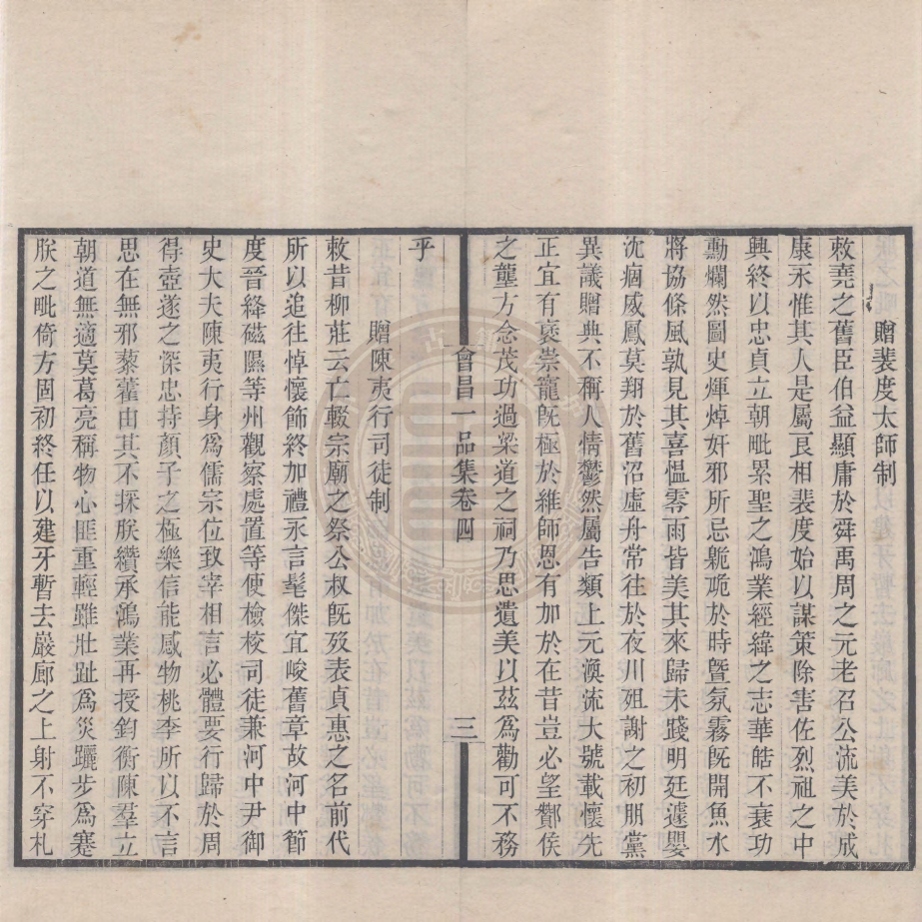 贈裴度太師制
敕堯之舊臣伯益顯庸於舜禹周之元老召公流美於成
康永惟其人是屬良相裴度始以謀策除害佐烈祖之中
興終以忠貞立朝毗累聖之鴻業經緯之志華皓不衰功
勳爛然圖史煇焯奸邪所忌臲卼於時曁氛霧旣開魚水
將協條風孰見其喜慍零雨皆美其來歸未踐明廷遽嬰
沈痼威鳳莫翔於舊沼虛舟常往於夜川殂謝之初朋黨
異議贈典不稱人情鬱然屬告類上元渙流大號載懷先
正宜有襃崇寵旣極於維師恩有加於在昔豈必望酇侯
之壟方念茂功過梁道之祠乃思遺美以茲爲勸可不務
會昌一品集卷四
三
乎
贈陳夷行司徒制
敕昔柳莊云亡輟宗廟之祭公叔旣歿表貞惠之名前代
所以追往悼懷飾終加禮永言髦傑宜峻舊章故河中節
度晉絳磁隰等州觀察處置等使檢校司徒兼河中尹御
史大夫陳夷行身爲儒宗位致宰相言必體要行歸於周
得壺遂之深忠持顏子之極樂信能感物桃李所以不言
思在無邪藜藿由其不採朕纘承鴻業再授鈞衡陳羣立
朝道無適莫葛亮稱物心匪重輕雖壯趾爲災躧步爲蹇
朕之毗倚方固初終任以建牙暫去巖廊之上射不穿札